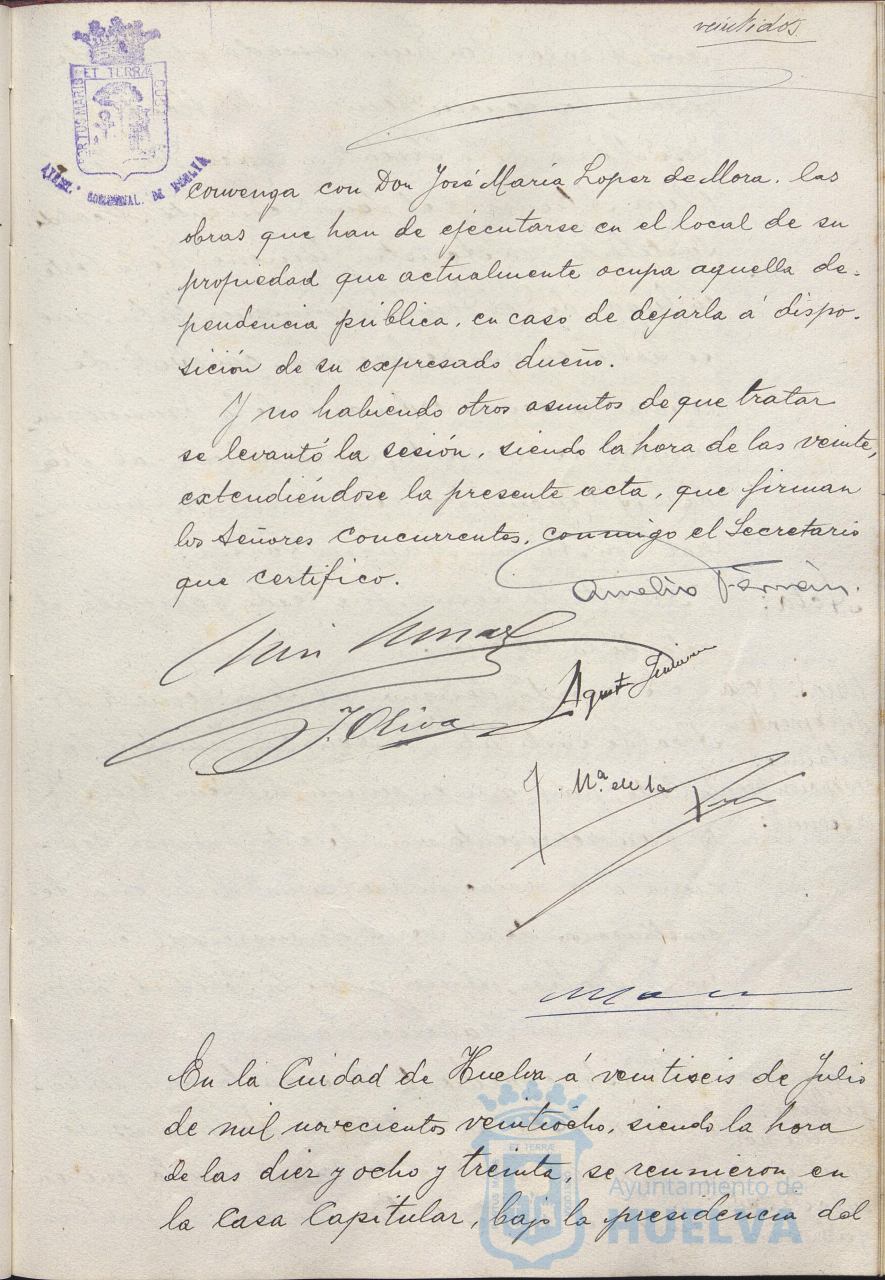 veintidos
PORTUS MARIS ET TERRÆ CUSTODIA
AYUNT.º CONSTITUCIONAL. DE HUELVA
convenga con Don José María Lopez de Mora, las
obras que han de ejecutarse en el local de su
propiedad que actualmente ocupa aquella de-
pendencia pública, en caso de dejarla á dispo-
sición de su expresado dueño.
Y no habiendo otros asuntos de que tratar
se levantó la sesión, siendo la hora de las veinte,
extendiéndose la presente acta, que firman
los Señores concurrentes, conmigo el Secretario
que certifico.
J. Oliva
J. Mª. de la
En la Ciudad de Huelva á veintiseis de Julio
de mil novecientos veintiocho, siendo la hora
de las diez y ocho y treinta, se reunieron en
la Casa Capitular, bajo la presidencia del
ET TERRÆ
Ayuntamiento de
HUELVA